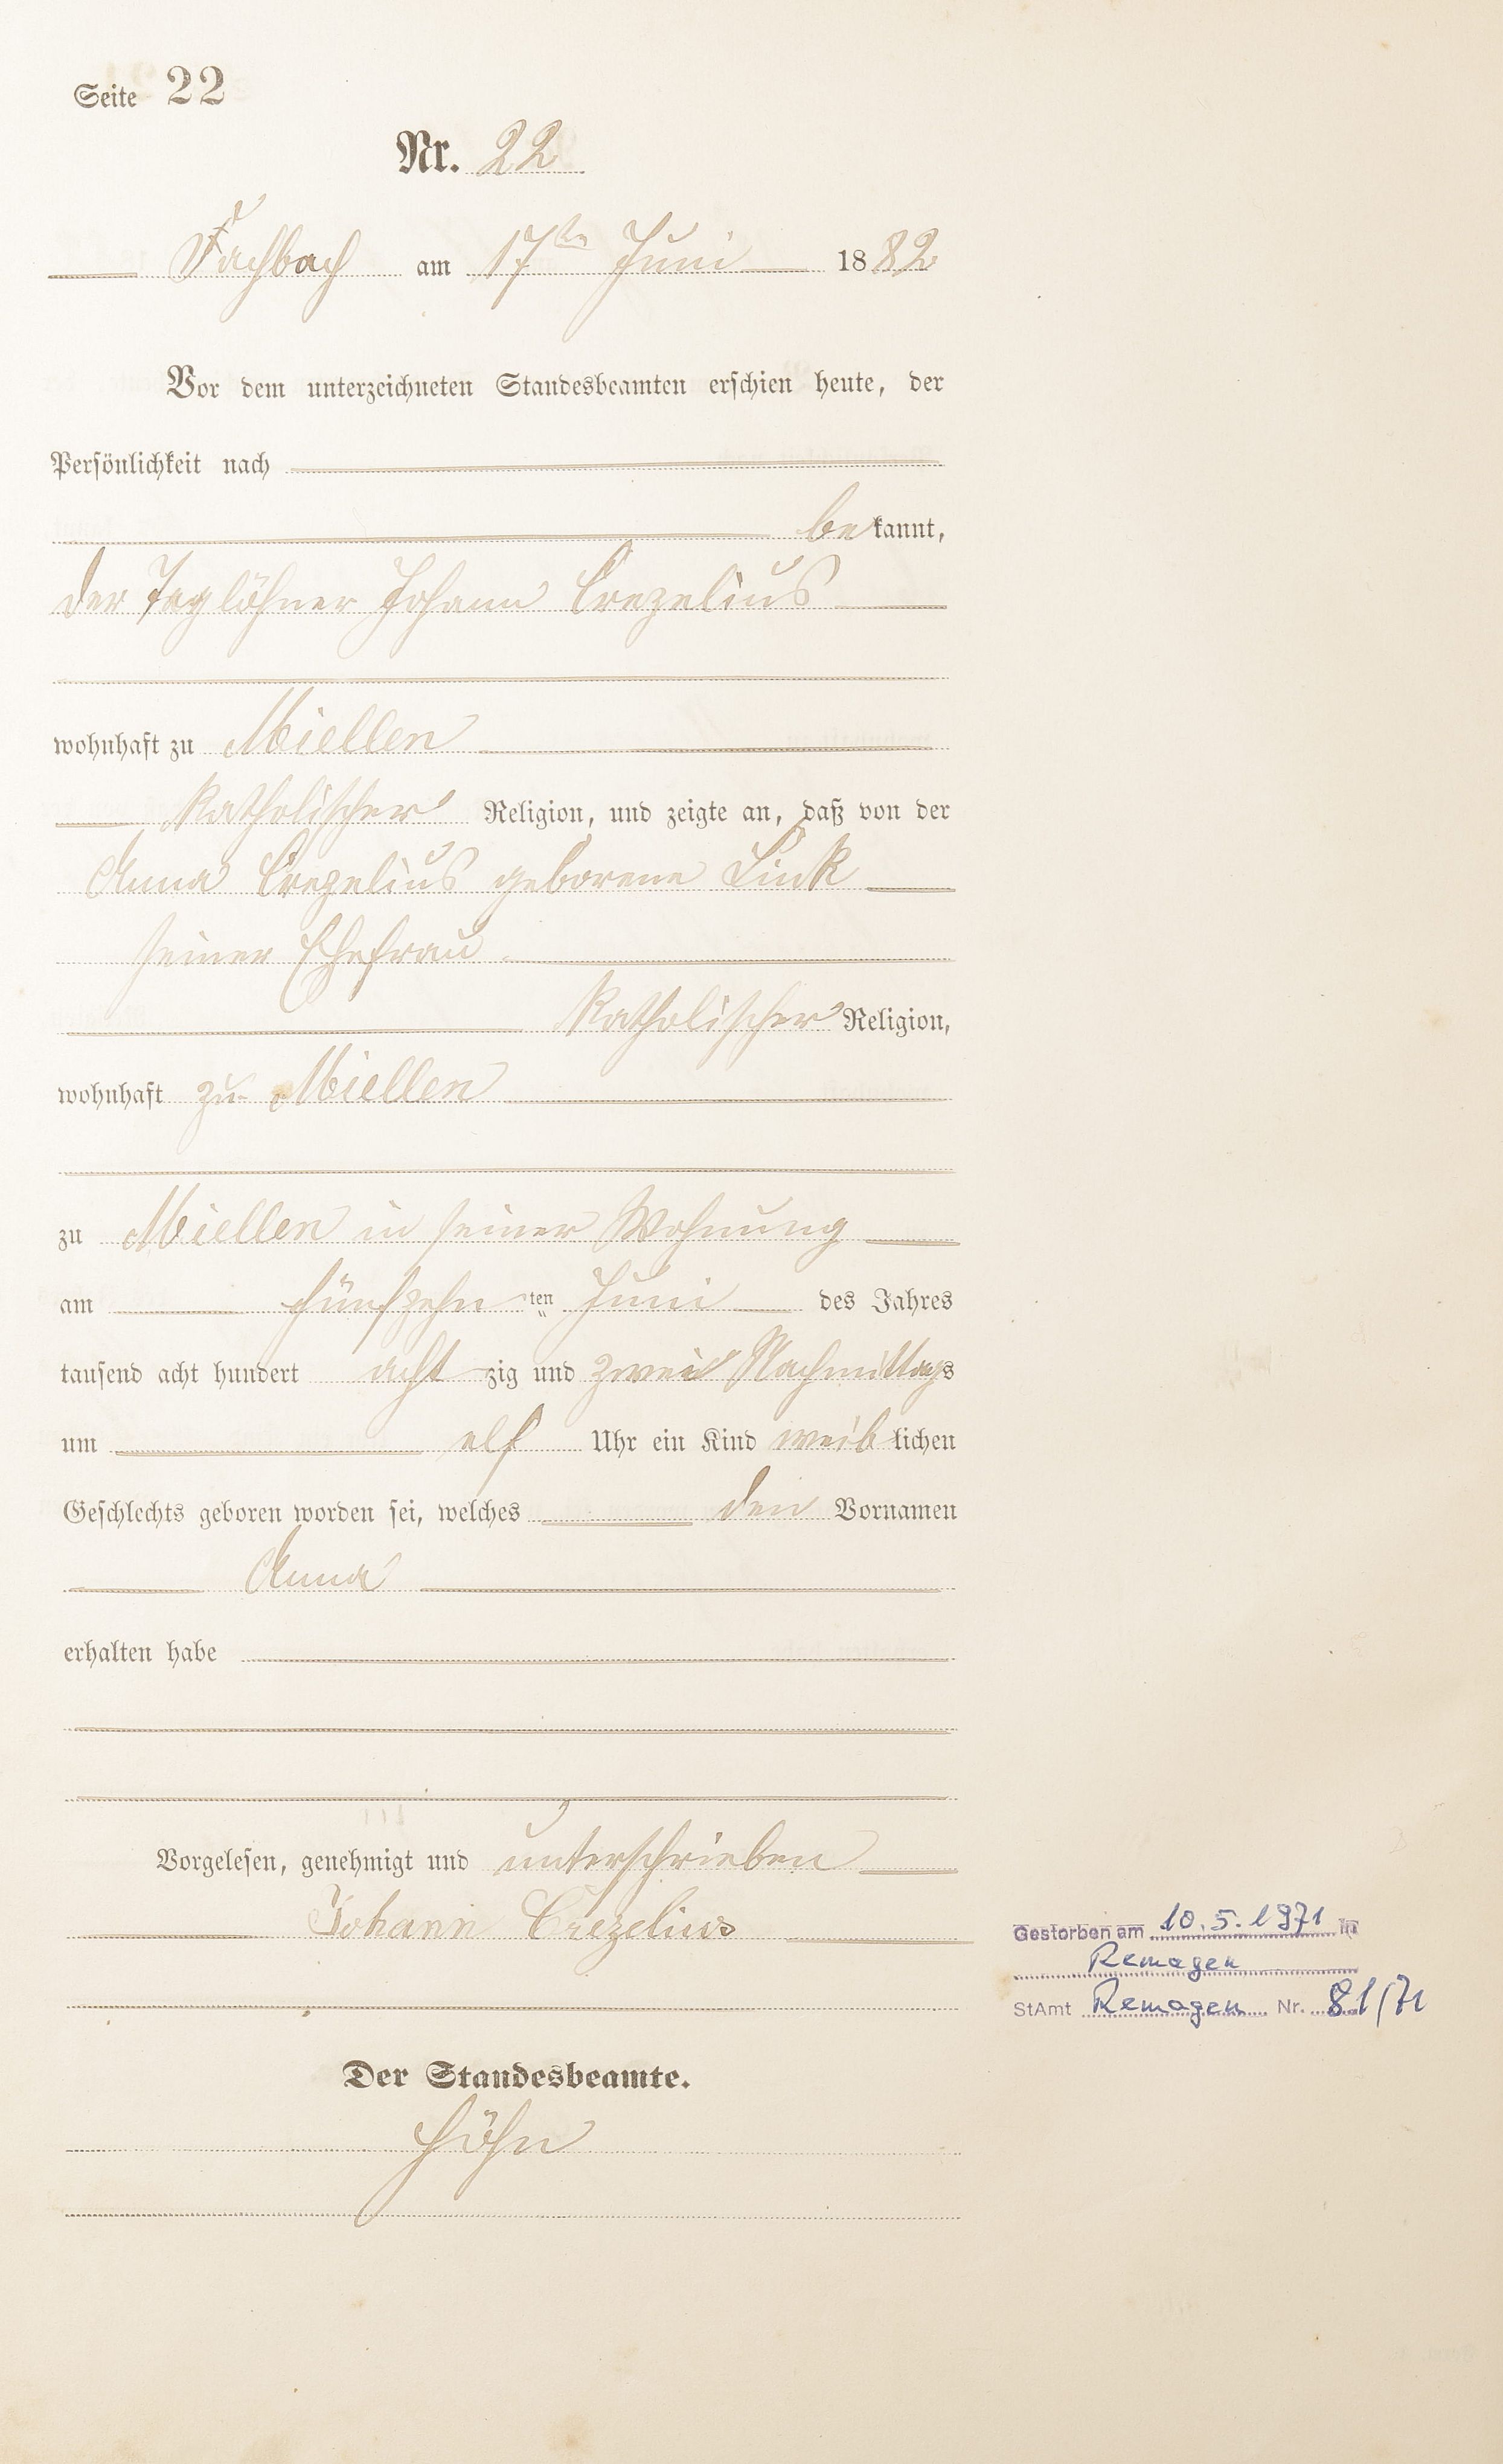 Seite 22
Nr. 22
Fachbach am 17ten Juni 1882
Vor dem unterzeichneten Standesbeamten erschien heute, der
Persönlichkeit nach
bekannt,
der Taglöhner Johann Crezelius
wohnhaft zu Miellen
katholischer Religion, und zeigte an, daß von der
Anna Crezelius geborene Link
seiner Ehefrau
katholischer Religion,
wohnhaft zu Miellen
zu Miellen in seiner Wohnung
am fünfzehn ten Juni des Jahres
tausend acht hundert achtzig und zwei Nachmittags
um elf Uhr ein Kind weiblichen
Geschlechts geboren worden sei, welches den Vornamen
Anna
erhalten habe
Vorgelesen, genehmigt und unterschrieben
Johann Crezelius
Gestorben am 10.5.1971 in
Remagen
StAmt Remagen Nr. 81/71
Der Standesbeamte.
Höhn